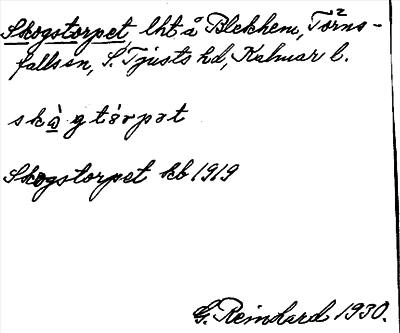 Skogstorpet lht å Blekhem, Törns-
falls sn, S. Tjusts hd, Kalmar l.
skò̲gtórpət
Skogstorpet kb 1919
G. Reinhard 1930.